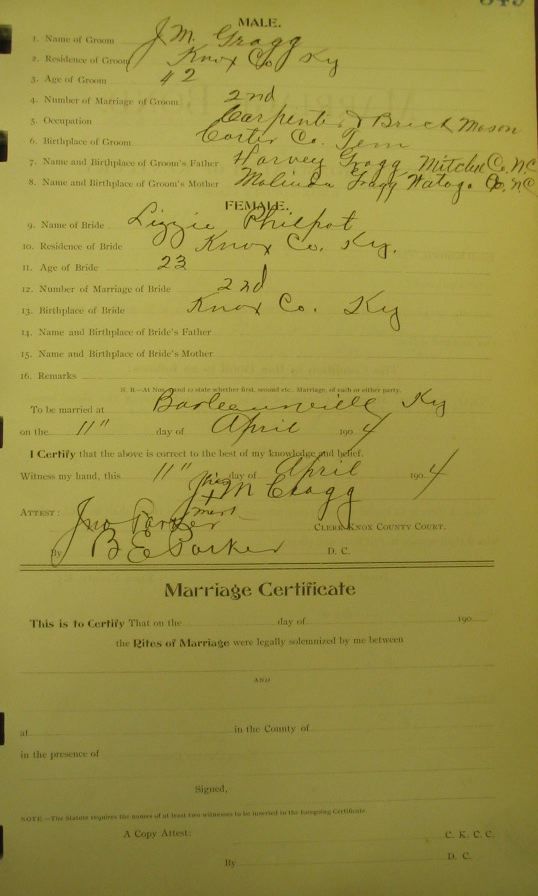 849
MALE.
1. Name of Groom J. M. Gragg
2. Residence of Groom Knox Co Ky
3. Age of Groom 42
4. Number of Marriage of Groom 2nd
5. Occupation Carpenter & Brick Mason
6. Birthplace of Groom Carter Co. Tenn
7. Name and Birthplace of Groom's Father Harvey Gragg Mitchel Co. N.C
8. Name and Birthplace of Groom's Mother Malinda Gragg Watoga Co. N.C
FEMALE.
9. Name of Bride Lizzie Philpot
10. Residence of Bride Knox Co. Ky.
11. Age of Bride 23
12. Number of Marriage of Bride 2nd
13. Birthplace of Bride Knox Co. Ky
14. Name and Birthplace of Bride's Father
15. Name and Birthplace of Bride's Mother
16. Remarks
N. B.—At Nos. and to state whether first, second etc., Marriage, of each or either party.
To be married at Ky
on the "11" day of April 1904
I Certify that the above is correct to the best of my knowledge and belief.
Witness my hand, this "11" day of April 1904
J M Gragg
his
x
mark
ATTEST: Jno Parker CLERK KNOX COUNTY COURT.
By B E Parker D. C.
Marriage Certificate
This is to Certify That on the day of 190
the Rites of Marriage were legally solemnized by me between
AND
at in the County of
in the presence of
Signed,
NOTE.—The Statute requires the names of at least two witnesses to be inserted in the foregoing Certificate.
A Copy Attest: C. K. C. C.
By D. C.